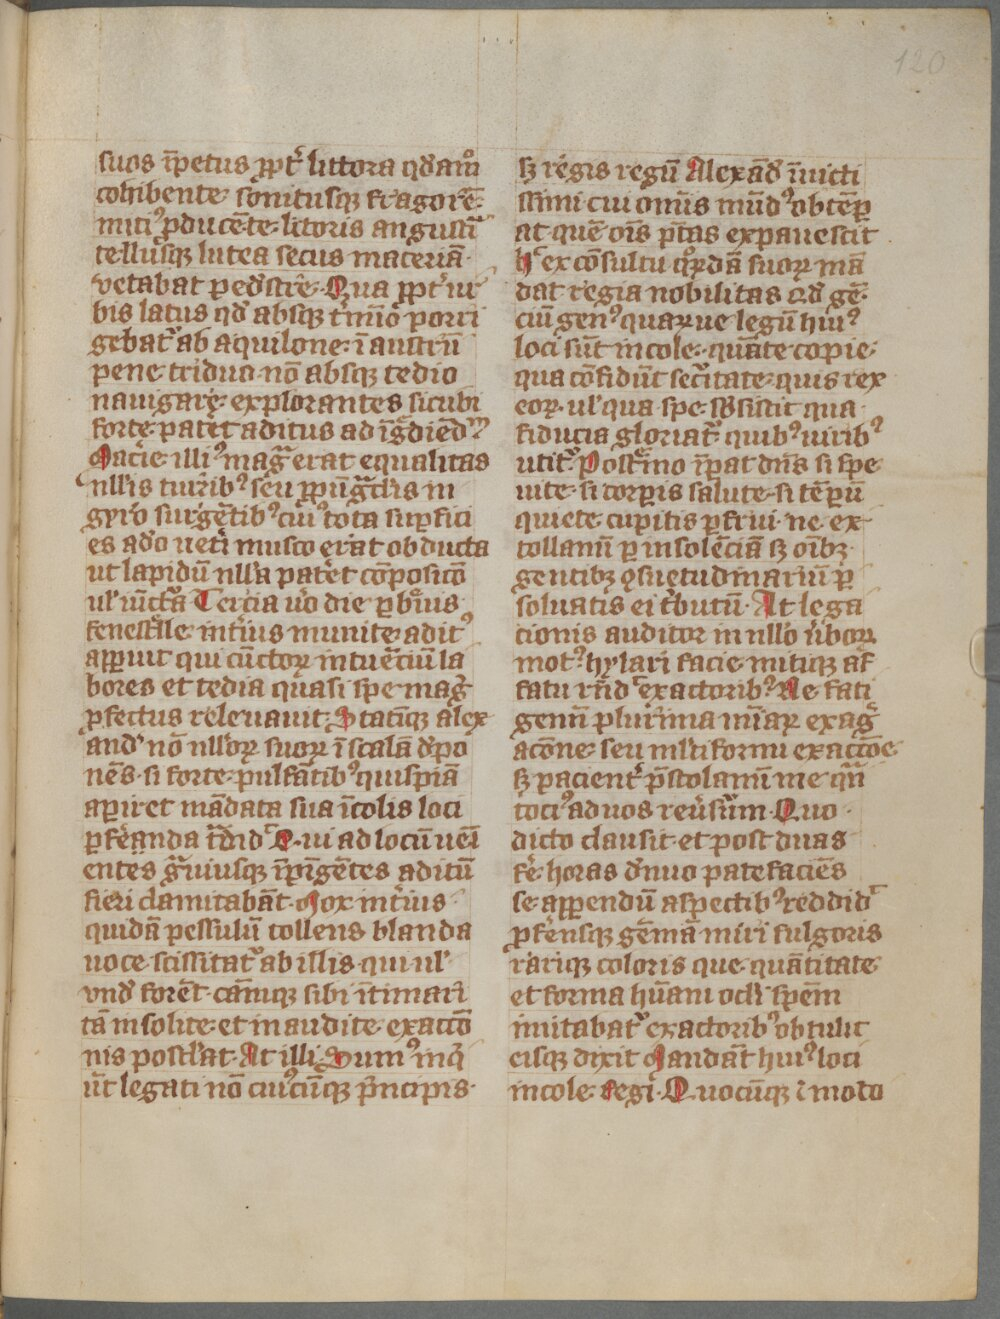 120
suos īpetus ꝓpt᷑ littora qdāmͦ
cohibente· sonitusqꝫ fragorē·
mitiꝰ ꝓducēte· litoris angusti
tellusqꝫ lutea secus maceriā·
vetabat pedestre· Qua ꝓpt᷑ ur
bis latus qd̕ absqꝫ t̕mīo porri
gebat᷑ ab aquilone· ī austrū
pene triduo nō absqꝫ tedio
nauigare· explorantes sicubi
forte patet aditus ad īg̃diend
Macie illiꝰ mag̃ erat equalitas
nll̕is turribꝰ seu ꝓpūg̃cl̕is in
gyro surgētibꝰ cuiꝰ tota suꝑfici
es adͦo uet̕i musco erat obducta
ut lapidū nll̕a pat̕et cōposicō
ul̕ iūct̃a Tercia uͦo die ꝑbͬuis
fenestͬle int̕ius munite aditꝰ
apparuit qui cūctoꝝ intuēciū la
bores et tedia quasi spe mag̃
ꝓfectus releuauit· Statīqꝫ alex
and̕ nō nll̕oꝝ suoꝝ ī scalā d̕po
nēs· si forte pulsātibꝰ quispiā
apiret mādata sua īcolis loci
ꝑferanda t̃did᷑ Qui ad locū uēi
entes g̃uiusqꝫ īpīgētes aditū
fieri clamitabāt· Mox int̕ius
quidā pessulū tollens blanda
uoce scissitat᷑ ab illis qui ul̕
vnd̕ forēt· cāmqꝫ sibi ītimari
tā insolite et inaudite exactō
nis postl̕at· At illi· Sumꝰ inq̇
ūt legati nō cuiꝰcūqꝫ p̃ncipis·
sꝫ regis regū Alexād̕ īuicti
ssimi cui omīs mūdꝰ obtēꝑ
at quē oīs p̄tas expauescit
h᷑ ex cōsultu quoꝝdā suoꝝ mā
dat regia nobilitas Qd̕ gē·
ciū genꝰ quarue legū huiꝰ
loci sūt incole· quāte copie·
qua cōfidūt sec᷑itate· quis rex
eoꝝ· ul̕ qua spe sb̕sistit qua·
fiducia gloriat᷑ quibꝰ uiribꝰ
utit᷑ Post̃mo īpat dn̄s si spe
uite· si corꝑis salute· si tēpū
quiete cupitis ꝑfrui· ne ex
tollamī ꝑ insolēciā sꝫ oībꝫ
gentibꝫ ꝯsuetudinariū p̄
soluatis ei t̕butū· At lega
tionis auditor in nll̕o ūboꝝ
motꝰ hylari facie mitiqꝫ af
fatu rn̄d᷑ exactoribꝰ Ne fati
gemī plurima mīaꝝ exag̃
acōne· seu ml̕tiformi exactōe·
sꝫ pacient᷑ p̄stolamī me qm̄
tociꝰ ad uos reūsuꝝ· Quo·
dicto clausit· et post duas
fe᷑ horas d̕nuo patefaciēs
se appendū aspectibꝰ reddid᷑
ꝓferensqꝫ gēmā miri fulgoris
rariqꝫ coloris que quātitate
et forma hūani ocl̕i spēm
imitabat᷑ exactoribꝰ obtulit
eisqꝫ dixit Mandāt huiꝰ loci
incole Regi· Quocūqꝫ ī modo